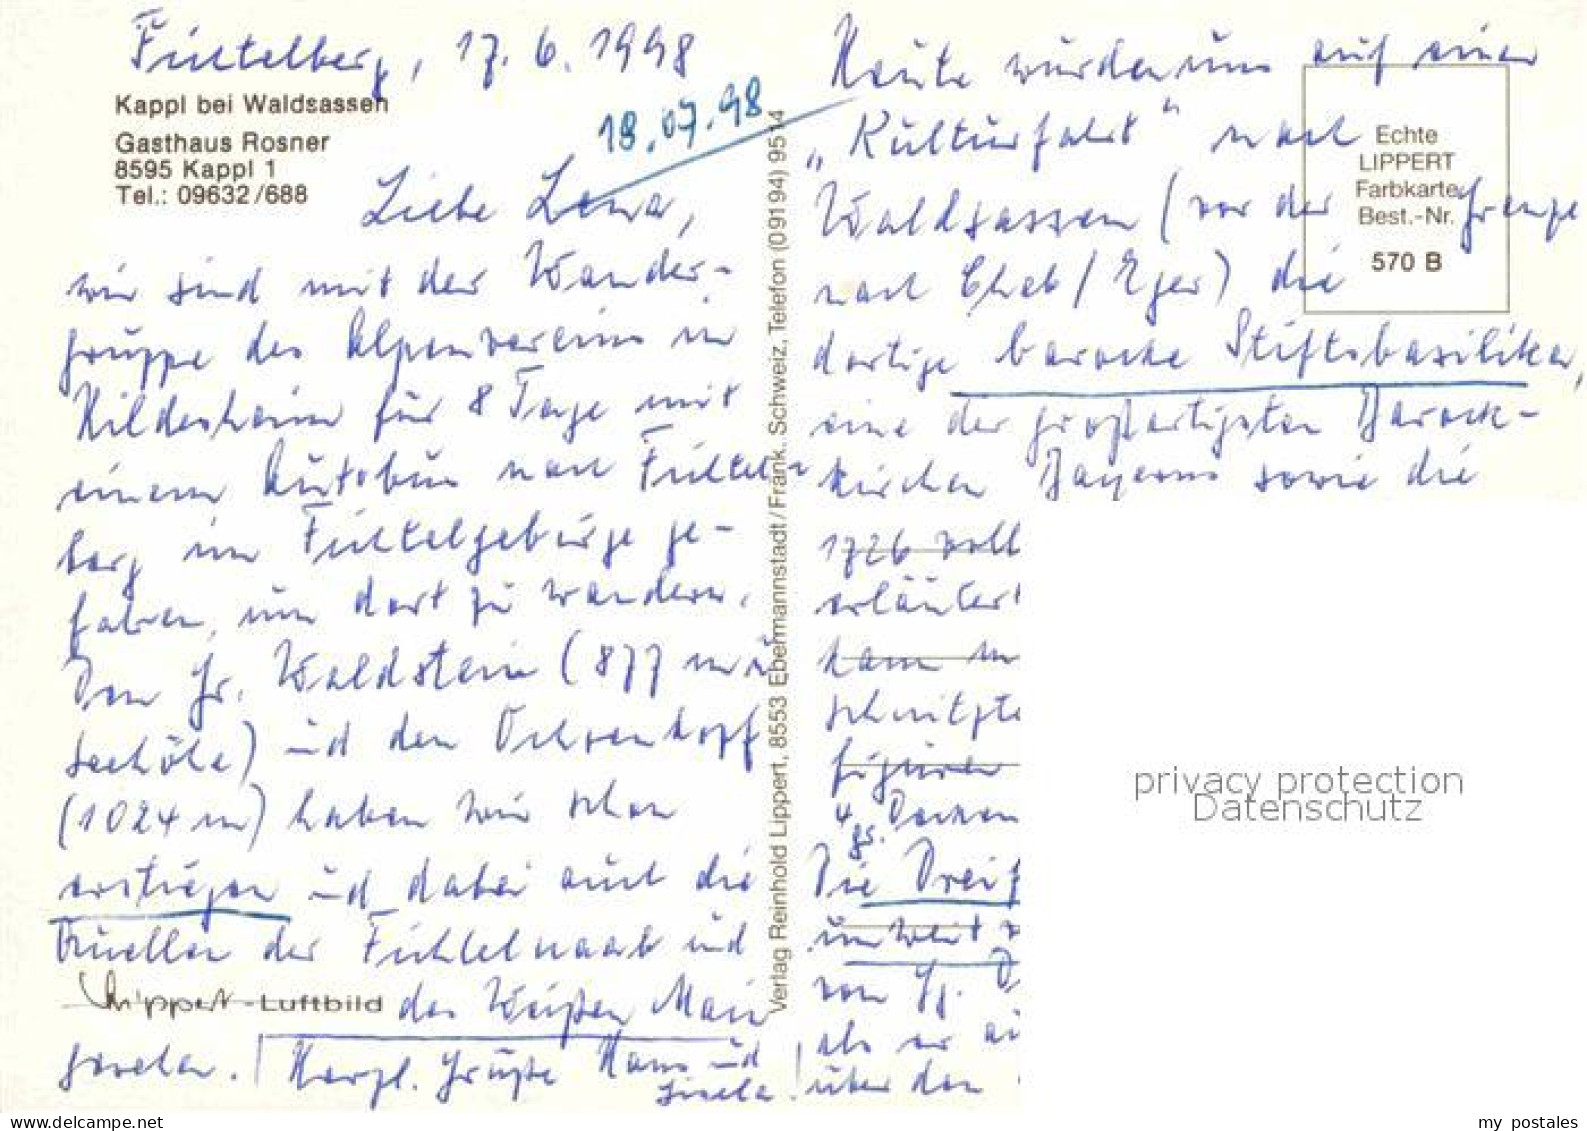 Fichtelberg, 17.6.1998
Kappl bei Waldsassen
18.07.98
Gasthaus Rosner
8595 Kappl 1
Tel.: 09632/688
Liebe Lena,
wir sind mit der Wander-
gruppe des Alpenvereins in
Hildesheim für 8 Tage mit
einem Autobus nach Fichtel-
berg im Fichtelgebirge ge-
fahren, um dort zu wandern.
Den Gr. Waldstein (877 m ü
Seehöhe) und den Ochsenkopf
(1024 m) haben wir schon
erstiegen und dabei auch die
Quellen der Fichtelnaab und
Lippert-Luftbild
des Weißen Main
gesehen.
Herzl. Grüße Hans und
Gisela
Verlag Reinhold Lippert, 8553 Ebermannstadt/Fränk. Schweiz, Telefon (09194) 9514
Heute wurde uns auf einer
„Kulturfahrt" nach
Waldsassen (vor der Grenze
nach Cheb/Eger) die
dortige barocke Stiftsbasilika,
eine der großartigsten Barock-
kirchen Bayerns sowie die
1726 voll
erläutert
kann
schnitzte
figuren
4 gr. Decken
Die Dreif
unweit
von Gg. D
als er
über den
Echte
LIPPERT
Farbkarte
Best.-Nr.
570 B
privacy protection
Datenschutz
www.delcampe.net
my postales